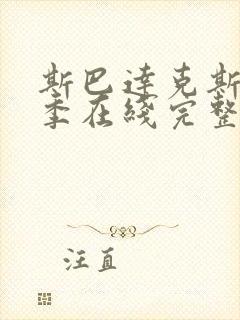 斯巴达克斯
季在线完整
汪直